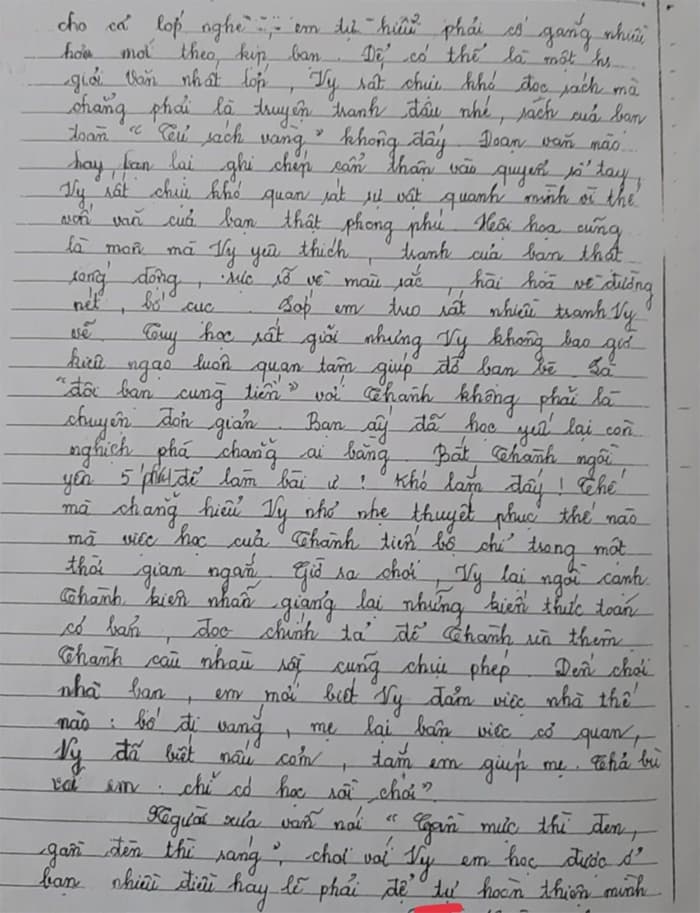 cho cả lớp nghe..., em tự hiểu phải cố gắng nhiều
hơn mới theo kịp bạn. Để có thể là một hs
giỏi văn nhất lớp, Vy rất chịu khó đọc sách mà
chẳng phải là truyện tranh đâu nhé, sách của bạn
toàn "Tủ sách vàng" không đấy. Đoạn văn nào
hay bạn lại ghi chép cẩn thận vào quyển sổ tay,
Vy rất chịu khó quan sát sự vật quanh mình vì thế
vốn văn của bạn thật phong phú. Hội họa cũng
là môn mà Vy yêu thích, tranh của bạn thật
sống động, rực rỡ về màu sắc, hài hoà về đường
nét, bố cục. Lớp em treo rất nhiều tranh Vy
vẽ. Tuy học rất giỏi nhưng Vy không bao giờ
kiêu ngạo luôn quan tâm giúp đỡ bạn bè. Là
"đôi bạn cùng tiến" với Thành không phải là
chuyện đơn giản. Bạn ấy đã học yếu lại còn
nghịch phá chẳng ai bằng. Bắt Thành ngồi
yên 5 phút để làm bài ư! Khó lắm đấy! Thế
mà chẳng hiểu Vy nhỏ nhẹ thuyết phục thế nào
mà việc học của Thành tiến bộ chỉ trong một
thời gian ngắn. Giờ ra chơi, Vy lại ngồi cạnh
Thành kiên nhẫn giảng lại những kiến thức toán
cơ bản, đọc chính tả để Thành rèn thêm
Thành càu nhàu rồi cũng chịu phép. Đến chơi
nhà bạn, em mới biết Vy đảm việc nhà thế
nào: bố đi vắng, mẹ lại bận việc cơ quan,
Vy đã biết nấu cơm, tắm em giúp mẹ. Chả bù
với em. chỉ có học rồi chơi"
Người xưa vẫn nói "Gần mực thì đen,
gần đèn thì sáng", chơi với Vy em học được ở
bạn nhiều điều hay lẽ phải để tự hoàn thiện mình